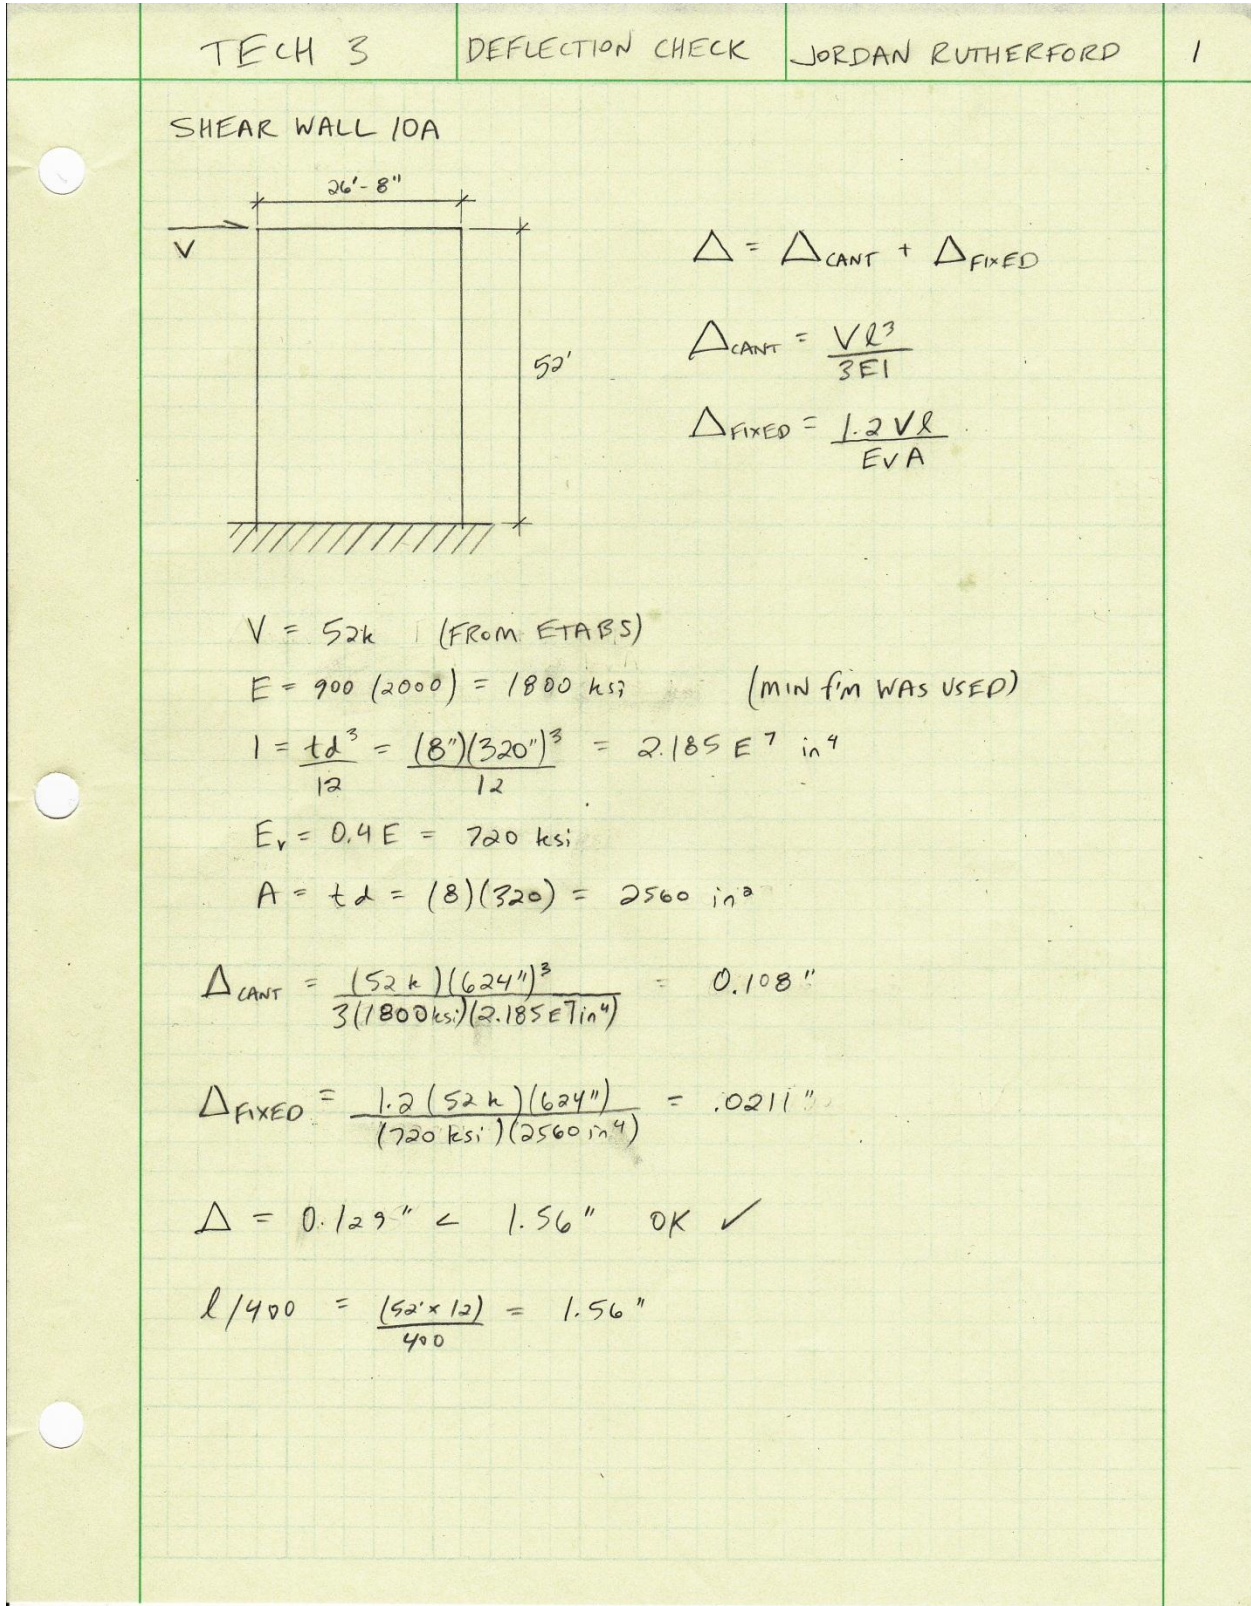 TECH 3 DEFLECTION CHECK JORDAN RUTHERFORD 1
SHEAR WALL 10A
26'-8"
V
52'
Δ = Δ CANT + Δ FIXED
Δ CANT = Vℓ³ / 3EI
Δ FIXED = 1.2Vℓ / EvA
V = 52k (FROM ETABS)
E = 900 (2000) = 1800 ksi (MIN f'm WAS USED)
I = td³/12 = (8")(320")³/12 = 2.185 E⁷ in⁴
Ev = 0.4E = 720 ksi
A = td = (8)(320) = 2560 in²
Δ CANT = (52k)(624")³ / 3(1800ksi)(2.185E7in⁴) = 0.108"
Δ FIXED = 1.2(52k)(624") / (720 ksi)(2560in⁴) = .0211"
Δ = 0.129" < 1.56" OK ✓
ℓ/400 = (52'x12)/400 = 1.56"